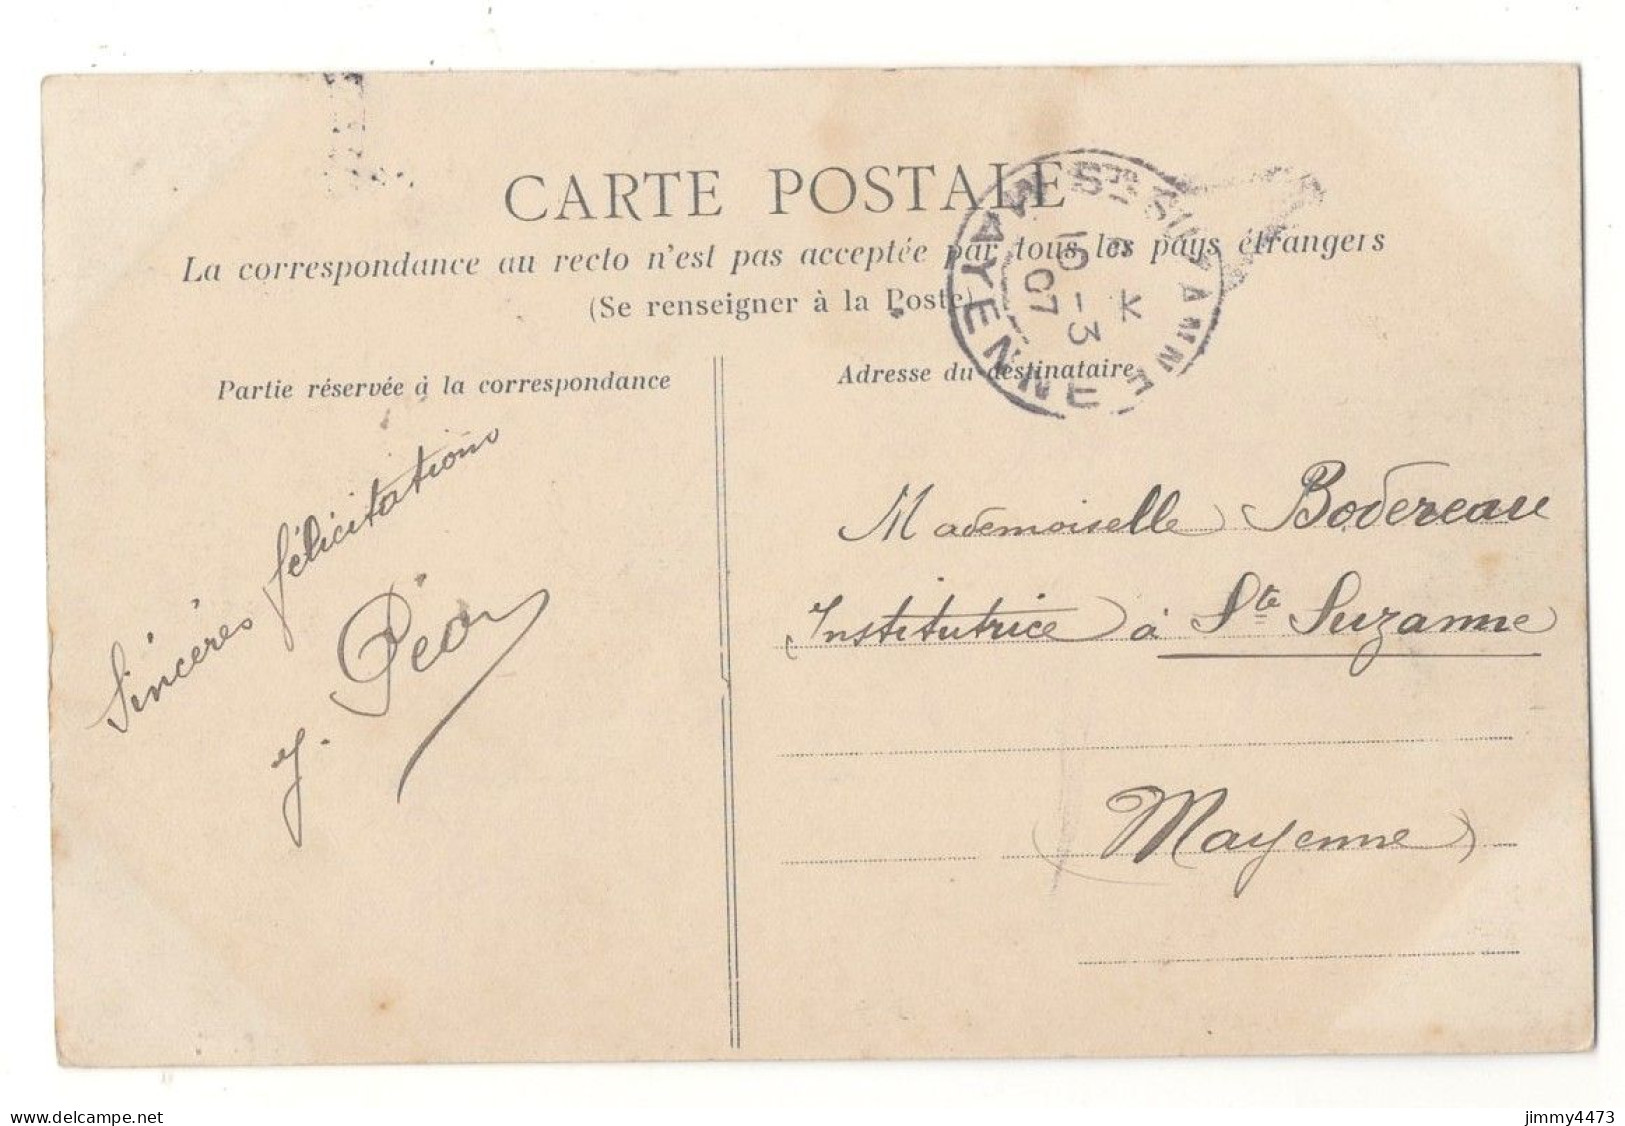 CARTE POSTALE
La correspondance au recto n'est pas acceptée par tous les pays étrangers
(Se renseigner à la Poste)
Partie réservée à la correspondance
Sincères félicitations
J. Péan
Adresse du destinataire
Mademoiselle Bodereau
Institutrice à Ste Suzanne
(Mayenne)
STE SUZANNE
K
10 - 3
07
MAYENNE
www.delcampe.net
jimmy4473